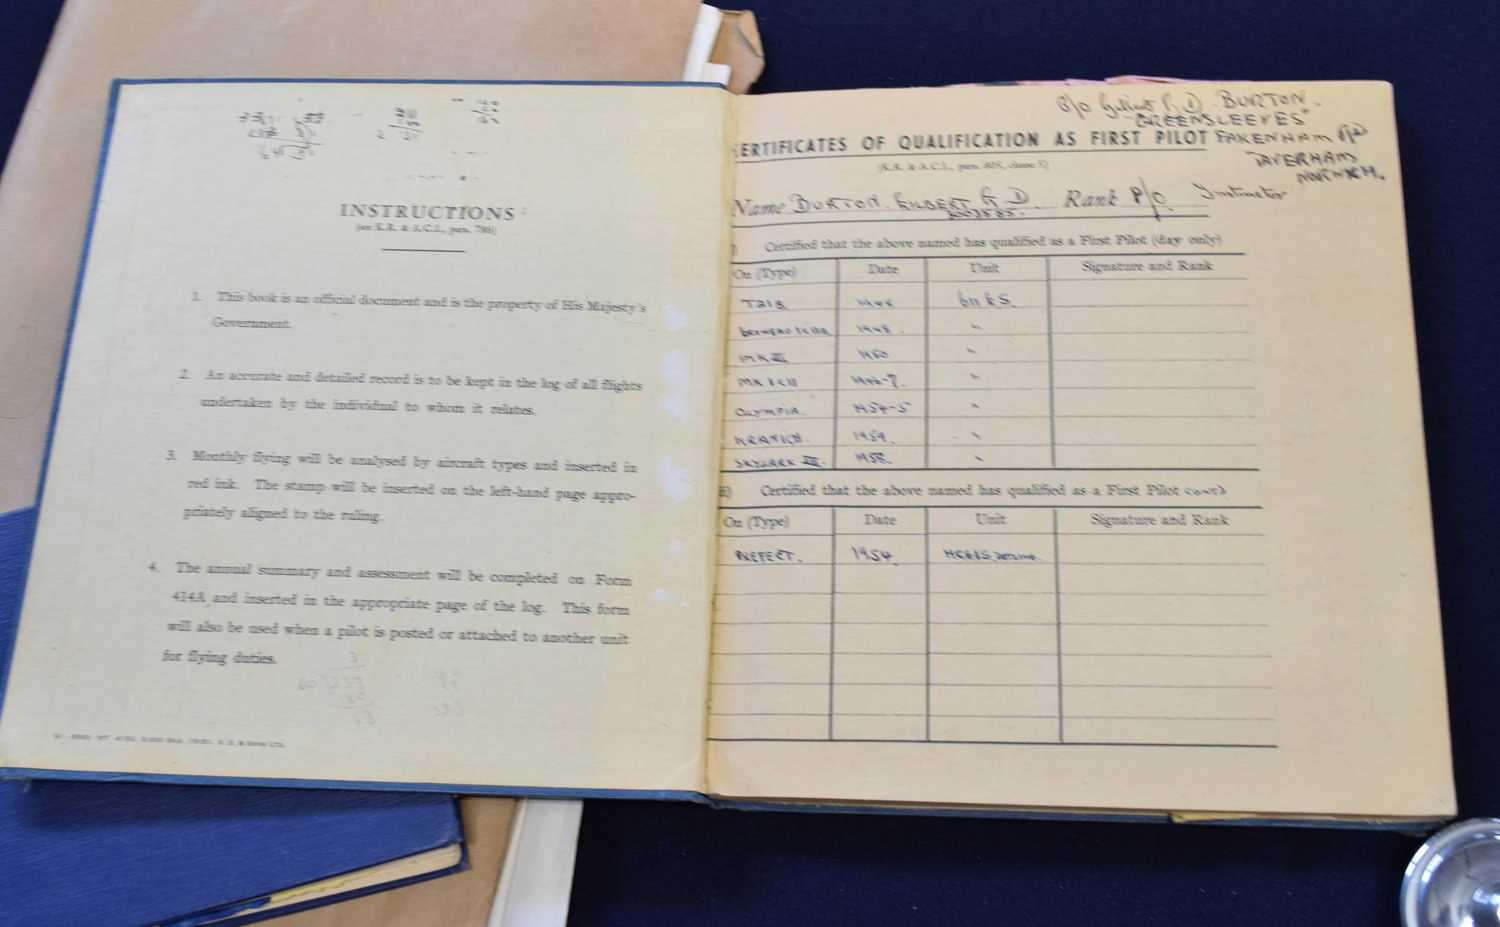 INSTRUCTIONS
(see K.R. & A.C.I., para. 786)
1. This book is an official document and is the property of His Majesty's
Government.
2. An accurate and detailed record is to be kept in the log of all flights
undertaken by the individual to whom it relates.
3. Monthly flying will be analysed by aircraft types and inserted in
red ink. The stamp will be inserted on the left-hand page appro-
priately aligned to the ruling.
4. The annual summary and assessment will be completed on Form
414A and inserted in the appropriate page of the log. This form
will also be used when a pilot is posted or attached to another unit
for flying duties.
P/O Gilbert G D. BURTON.
"GREENSLEEVES"
CERTIFICATES OF QUALIFICATION AS FIRST PILOT FAKENHAM RD
TAVERHAM
NORWICH.
(K.R. & A.C.I., para. 805, clause 5)
Name BURTON. GILBERT G D. Rank P/O. Instructor
Certified that the above named has qualified as a First Pilot (day only)
On (Type) Date Unit Signature and Rank
T21B
MK III 1950 "
OLYMPIA. 1954-5 "
KRANICH. 1959. "
SKYLARK III. 1958. "
ii) Certified that the above named has qualified as a First Pilot CONT)
On (Type) Date Unit Signature and Rank
PREFECT. 1954.